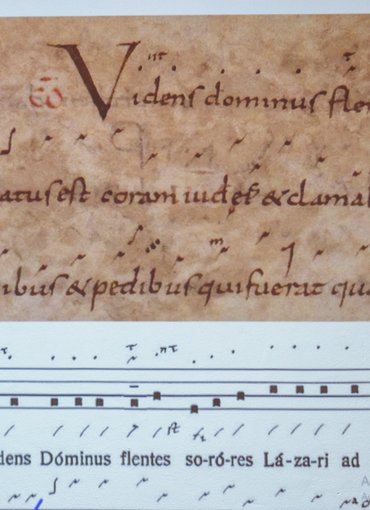 Videns dominus fle
atus est coram iudeis & clamab
ibus & pedibus qui fuerat qua
dens Dóminus flentes so-ró-res Lá-za-ri ad